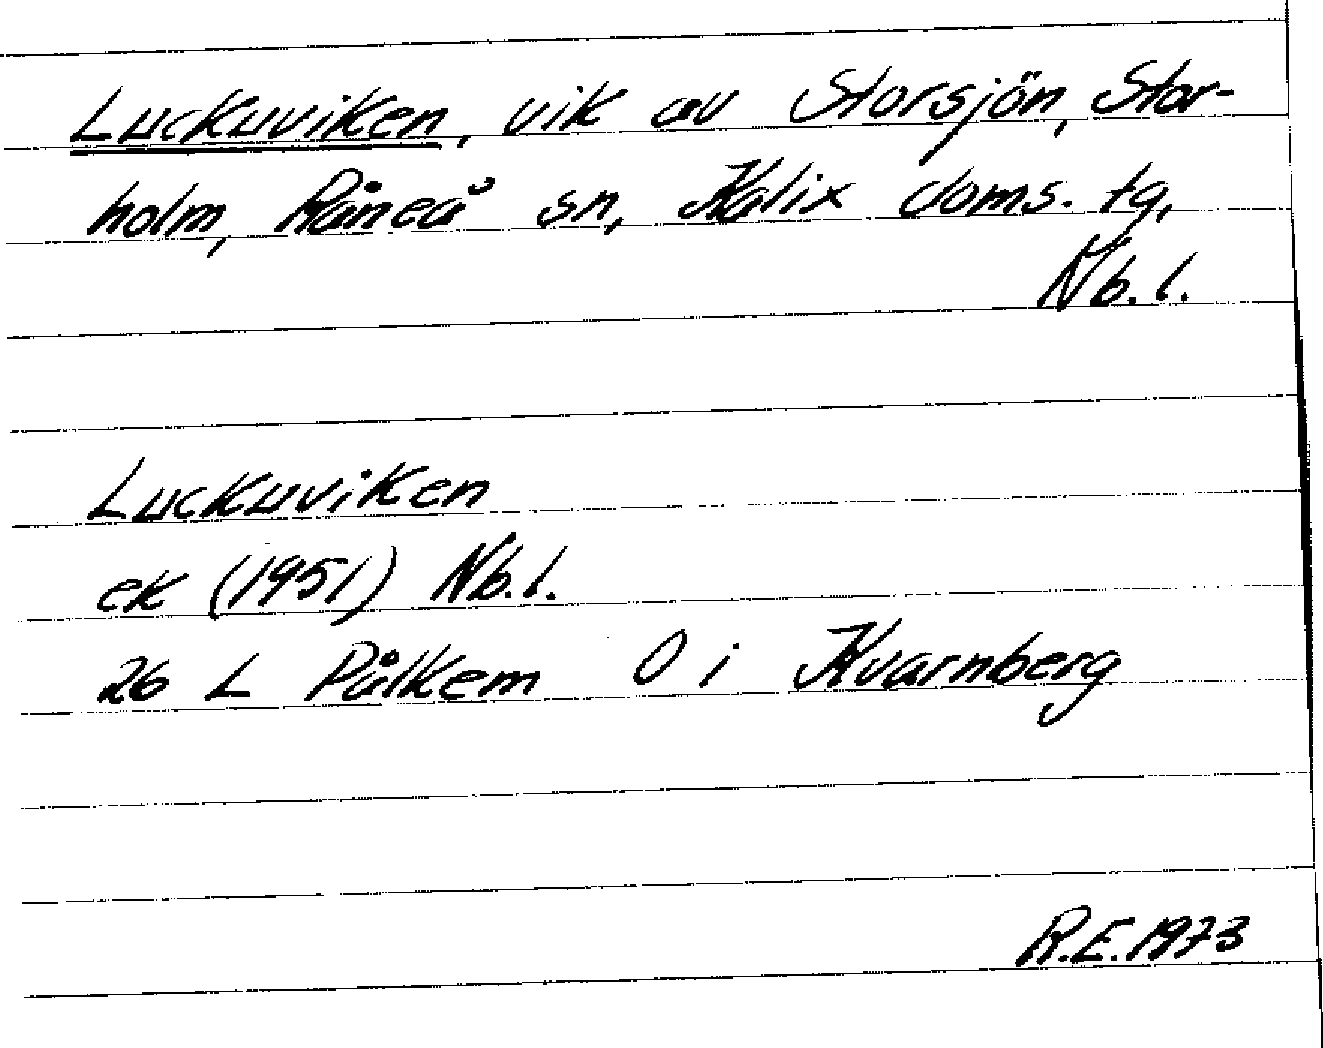 Luckuviken, vik av Storsjön, Stor-
holm, Råneå sn, Kalix doms. tg,
Nb.l.
Luckuviken
ek (1951) Nb.l.
26 L Pålkem O i Kvarnberg
R.E.1973